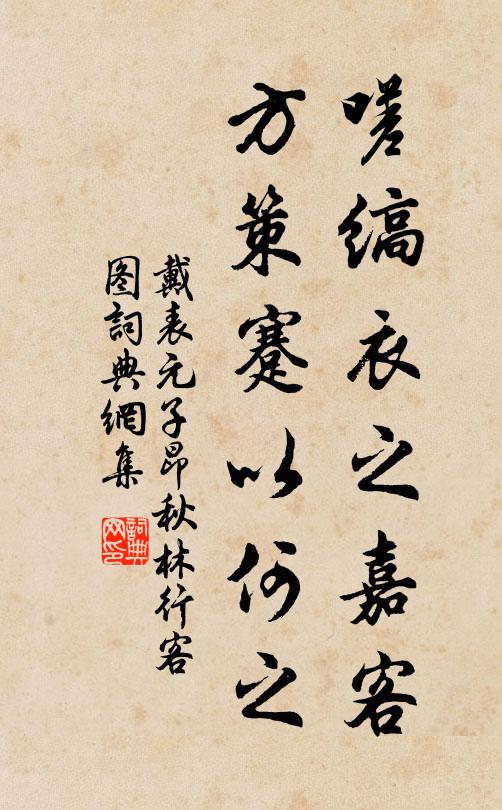 嗟縞衣之嘉客
方策蹇以何之
戴表元子昂秋林行客
图詞典網集
詞典网印